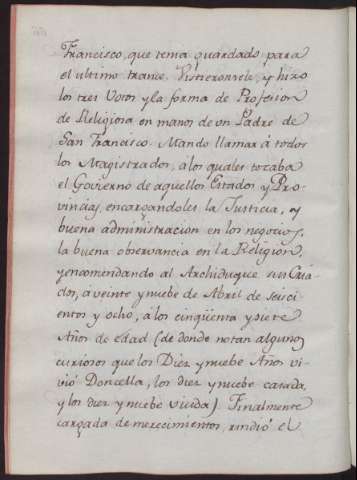 Francisco, que tenia guardado para
el ultimo trance. Vistieronsele, y hizo
los tres Votos y la forma de Profesion
de Religiosa en manos de un Padre de
San Francisco. Mandó llamar á todos
los Magistrados, á los quales tocaba
el Govierno de aquellos Estados y Pro-
vincias, encargandoles la Justicia, y
buena administracion en los negocios,
la buena observancia en la Religion,
y encomendando al Archiduque sus Cria-
dos, á veinte y nuebe de Abril de seisci-
entos y ocho, á los cinqüenta y siete
Años de edad (de donde notan algunos
curiosos que los Diez y nuebe Años vi-
vió Doncella, los diez y nuebe casada,
y los diez y nuebe viuda). Finalmente
cargada de merecimientos, rindió el